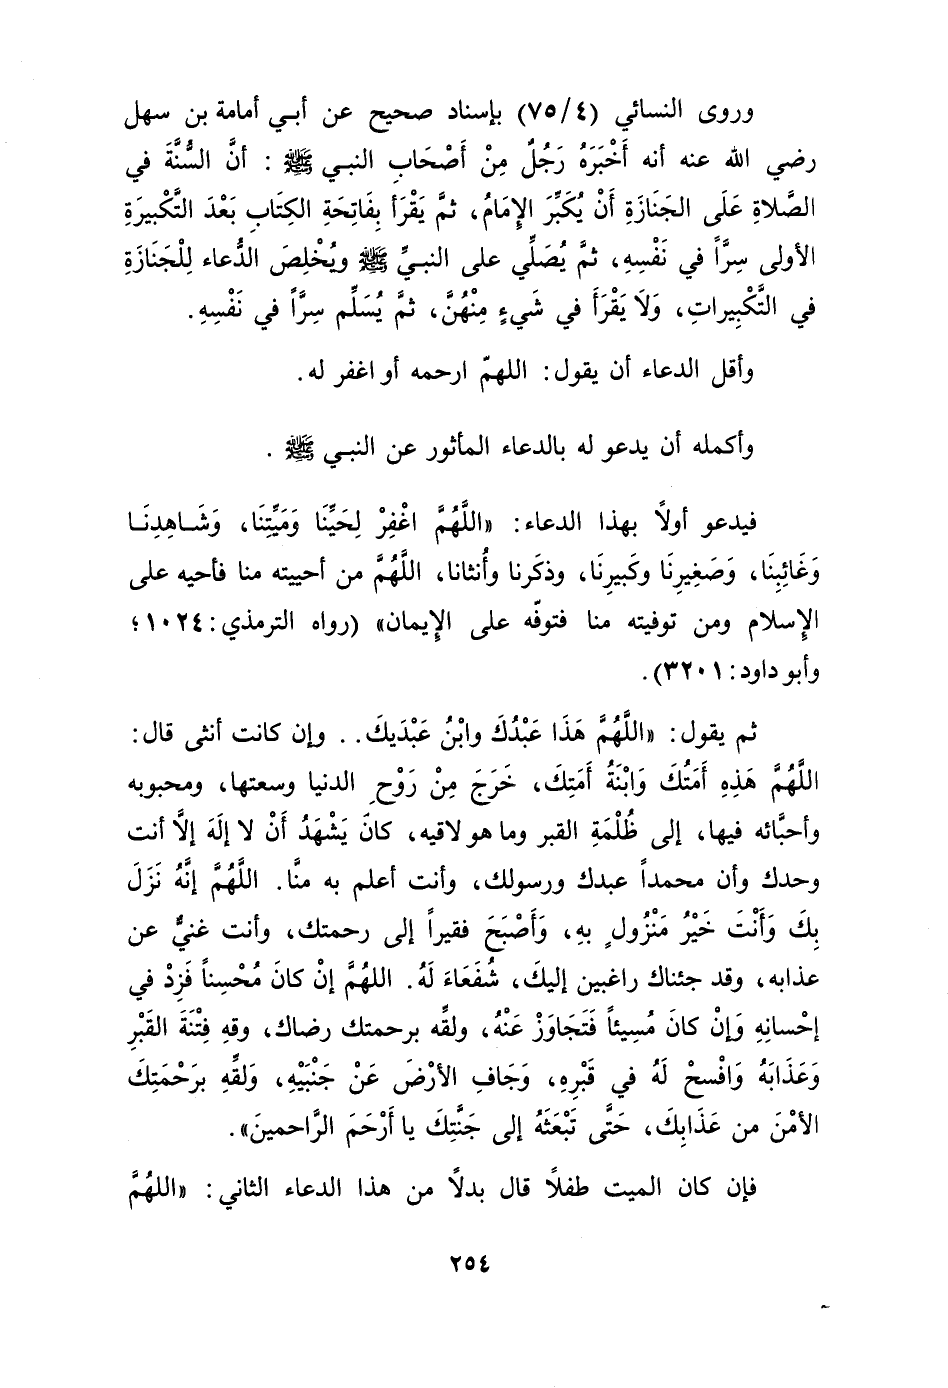 وروى النسائي (٧٥/٤) بإسناد صحيح عن أبي أمامة بن سهل
رضي الله عنه أنه أَخْبَرَهُ رَجُلٌ مِنْ أَصْحَابِ النبي ﷺ : أنَّ السُّنَّةَ في
الصَّلاةِ عَلَى الجَنَازَةِ أَنْ يُكَبِّرَ الإمَامُ، ثمَّ يَقْرَأ بِفَاتِحَةِ الكِتَابِ بَعْدَ التَّكْبيرَةِ
الأولى سِرَّاً في نَفْسِهِ، ثمَّ يُصَلِّي على النبيِّ ﷺ ويُخْلِصَ الدُّعاء لِلْجَنَازَةِ
في التَّكْبِيراتِ، وَلَا يَقْرَأَ في شَيءٍ مِنْهُنَّ، ثمَّ يُسَلِّم سِرَّاً في نَفْسِهِ.
وأقل الدعاء أن يقول: اللهمّ ارحمه أو اغفر له.
وأكمله أن يدعو له بالدعاء المأثور عن النبي ﷺ .
فيدعو أولاً بهذا الدعاء: «اللَّهُمَّ اغْفِرْ لِحَيِّنَا وَمَيِّتِنَا، وَشَاهِدِنَا
وَغَائِبِنَا، وَصَغِيرِنَا وكَبيرِنَا، وذكَرنا وأُنثانا، اللَّهُمَّ من أحييته منا فأحيه على
الإسلام ومن توفيته منا فتوفّه على الإيمان» (رواه الترمذي: ١٠٢٤؛
وأبو داود: ٣٢٠١).
ثم يقول: «اللَّهُمَّ هَذَا عَبْدُكَ وابْنُ عَبْدَيكَ. . وإن كانت أنثى قال:
اللَّهُمَّ هَذِهِ أمَتُكَ وَابْنَةُ أمَتِكَ، خَرَجَ مِنْ رَوْحِ الدنيا وسعتها، ومحبوبه
وأحبَّائه فيها، إلى ظُلْمَةِ القبر وما هو لاقيه، كانَ يَشْهَدُ أَنْ لا إلَهَ إلاَّ أنت
وحدك وأن محمداً عبدك ورسولك، وأنت أعلم به منَّا. اللَّهُمَّ إنَّهُ نَزَلَ
بِكَ وَأَنْتَ خَيْرُ مَنْزُولٍ بهِ، وَأَصْبَحَ فقيراً إلى رحمتك، وأنت غنيٌّ عن
عذابه، وقد جئناك راغبين إليكَ، شُفَعَاءَ لَهُ. اللهُمَّ إنْ كانَ مُحْسِناً فَزِدْ في
إحْسانِهِ وَإنْ كانَ مُسِيئاً فَتَجَاوَزْ عَنْهُ، ولقِّه برحمتك رضاك، وقهِ فِتْنَةَ القَبْرِ
وَعَذَابَهُ وَافْسحْ لَهُ في قَبْرِهِ، وَجَافِ الأرْضَ عَنْ جَنْبَيْهِ، وَلقِّهِ برَحْمَتِكَ
الأمْنَ من عَذَابِكَ، حَتَّى تَبْعَثَهُ إلى جَنَّتِكَ يا أَرْحَمَ الرَّاحمينَ».
فإن كان الميت طفلاً قال بدلاً من هذا الدعاء الثاني: «اللهُمَّ
٢٥٤